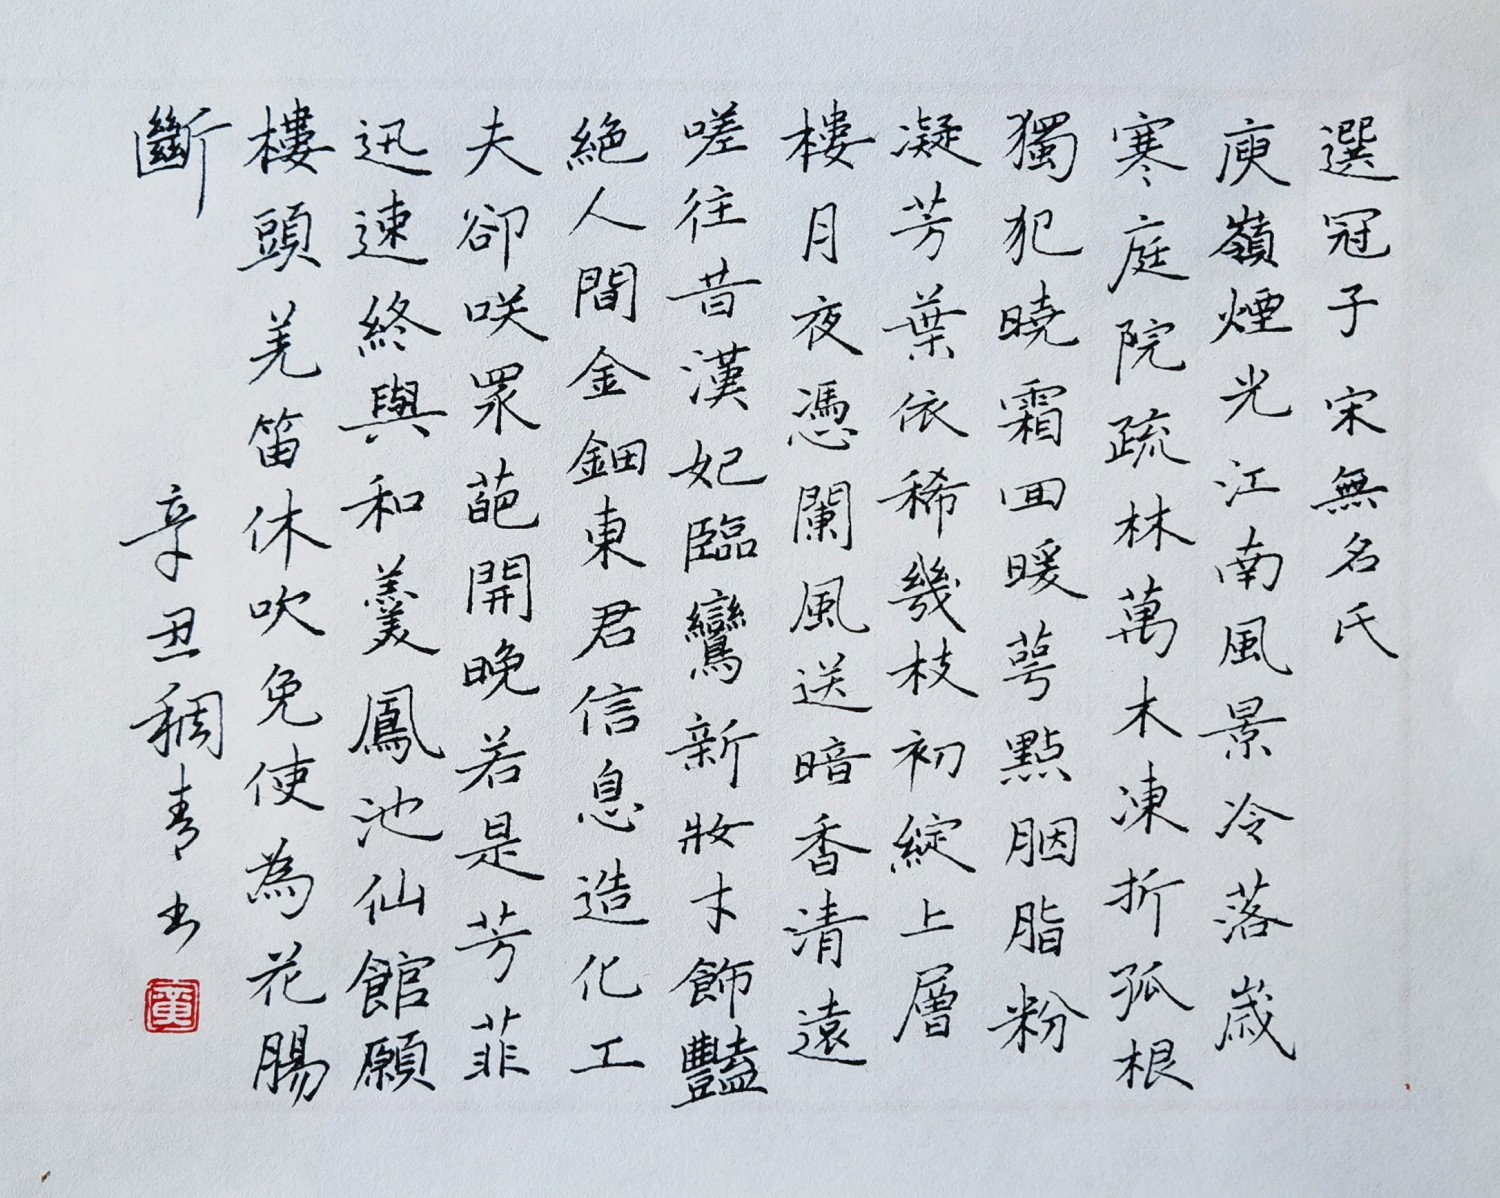 選冠子宋無名氏
庾嶺煙光江南風景冷落歲
寒庭院疏林萬木凍折孤根
獨犯曉霜回暖萼點胭脂粉
凝芳葉依稀幾枝初綻上層
樓月夜憑闌風送暗香清遠
嗟往昔漢妃臨鸞新妝才飾豔
絕人間金鈿東君信息造化工
夫卻咲眾葩開晚若是芳菲
迅速終與和羹鳳池仙館願
樓頭羌笛休吹免使為花腸
斷
辛丑稠青书